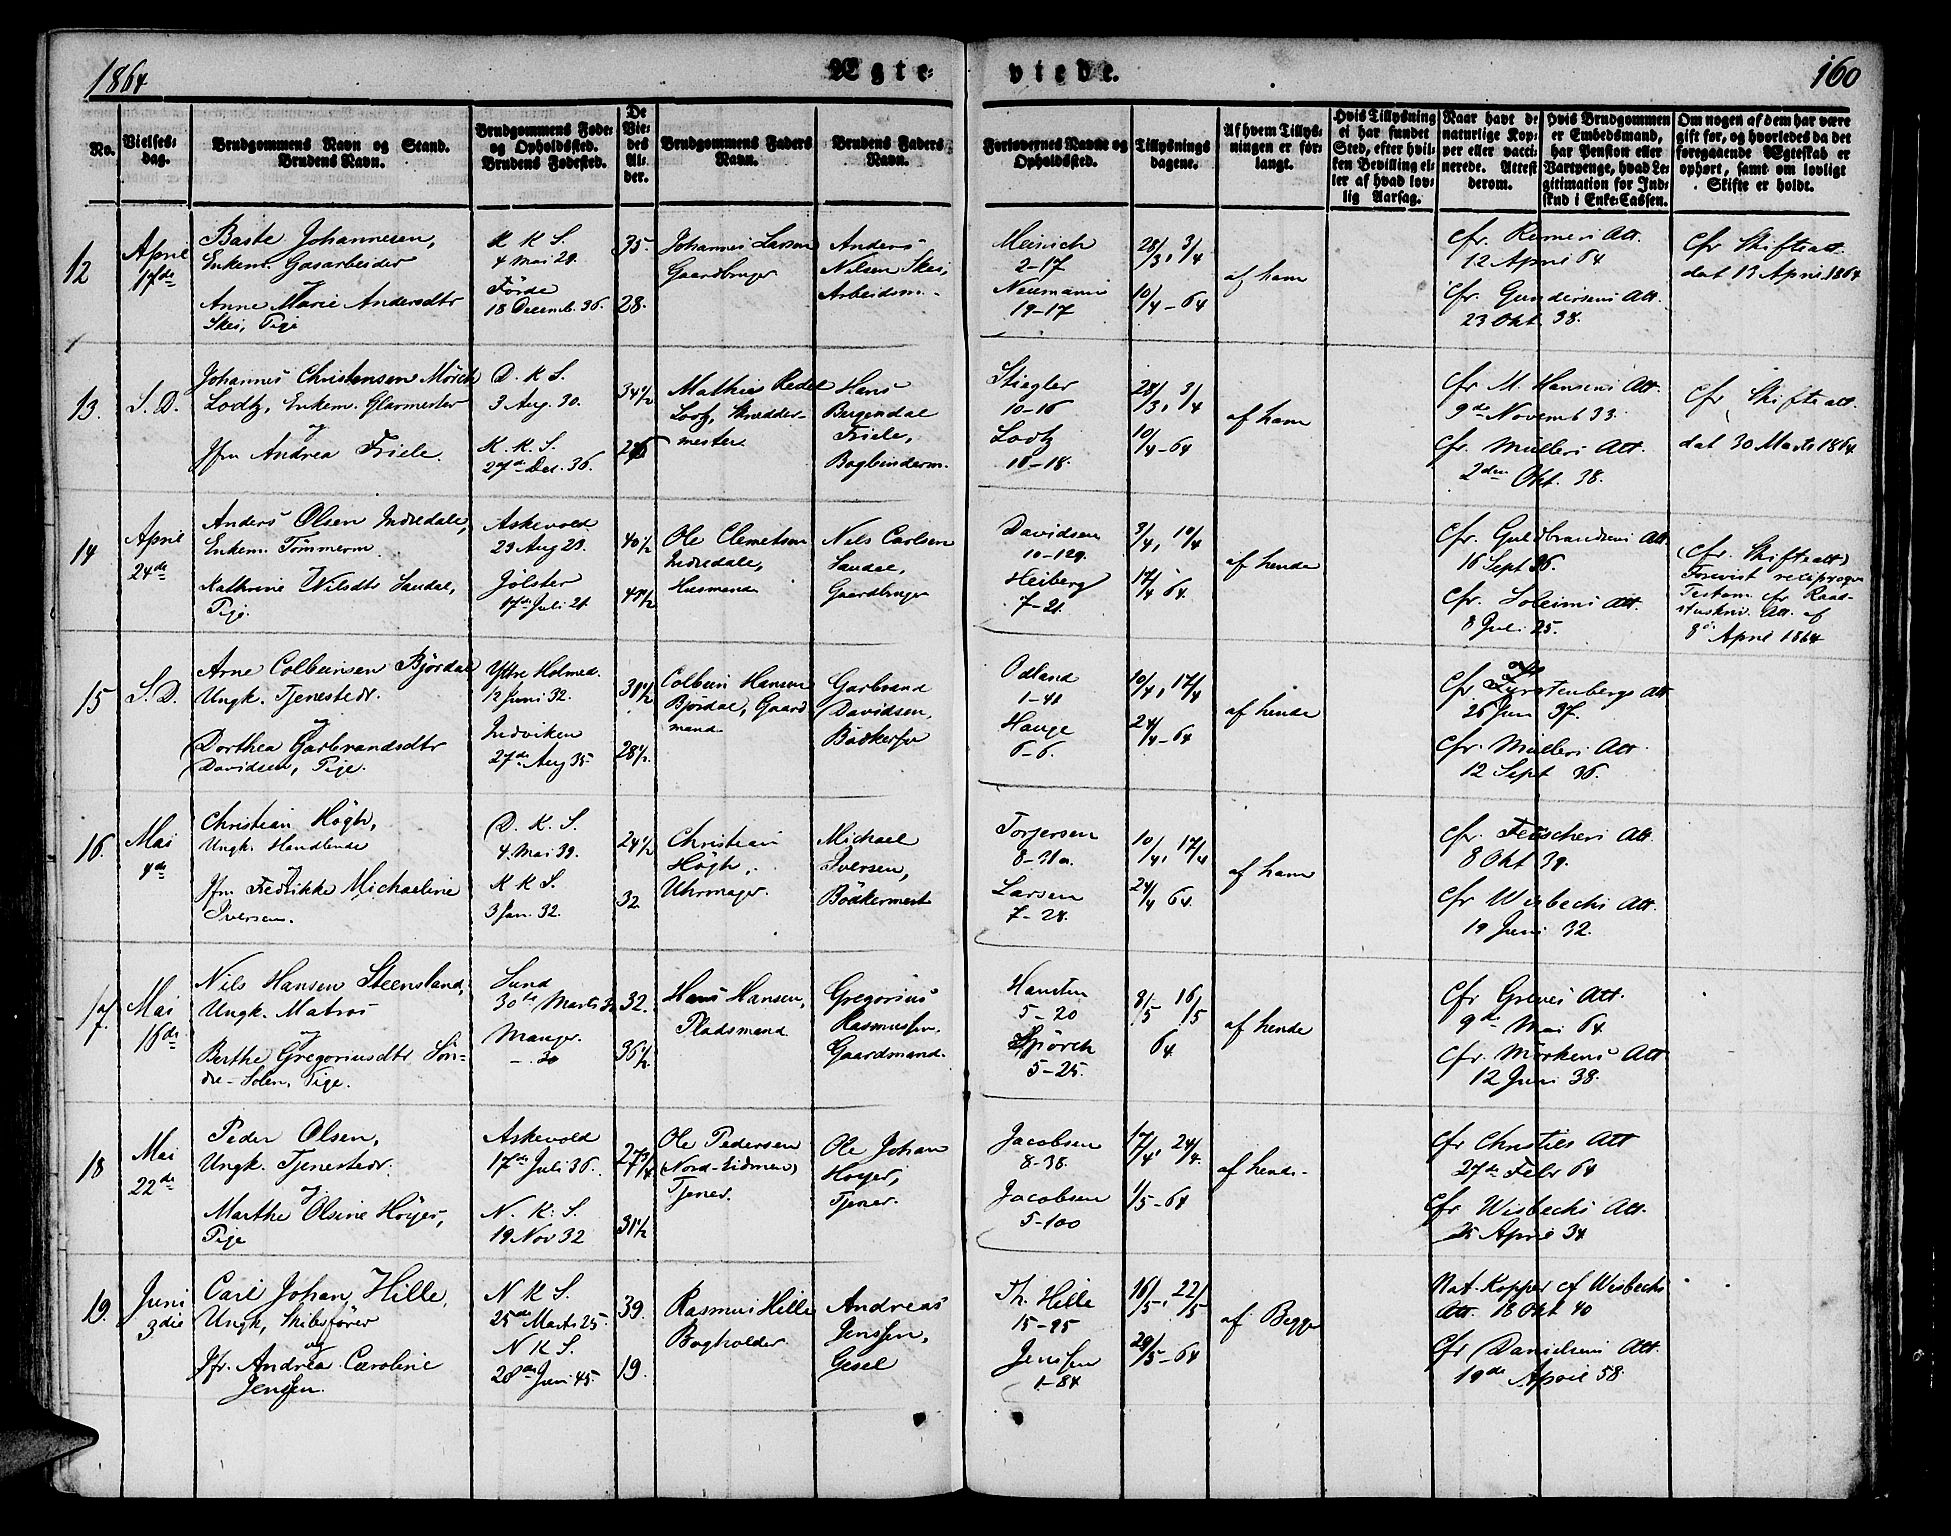 1864
Ægte-
viede.
160
No.
Vielses-
dag.
Brudgommens Navn og Stand.
Brudens Navn.
Brudgommens Føde-
og Opholdssted.
Brudens Fødested.
De
Vie-
des
Al-
der.
Brudgommens Faders
Navn.
Brudens Faders
Navn.
Forlovernes Navne og
Opholdssted.
Tillysnings
dagene.
Af hvem Tillys-
ningen er for-
langt.
Hvis Tillysning
ei har fundet
Sted, efter hvil-
ken Bevilling el-
ler af hvad lov-
lig Aarsag.
Naar havt de
naturlige Kop-
per eller vacci-
nerede. Attest
derom.
Hvis Brudgommen
er Embedsmand,
har Pension eller
Vartpenge, hvad Le-
gitimation for Ind-
skud i Enke-Cassen.
Om nogen af dem har være
gift før, og hvorledes da det
foregaaende Ægteskab er
ophørt, samt om lovligt
Skifte er holdt.
12
April
17de
Baste Johannesen,
Enkem. Gasarbeider
og
Anne Marie Andersdtr
Skei, Pige
K K S.
4 Mai 28.
Förde
18 Decemb. 36.
35.
28.
Johannes Larsen
Gaardbruger
Anders
Nilsen Skei,
Arbeidsm.
Meinich
2-17
Neumann
19-17
28/3, 3/4
10/4-64
af ham
Cfr. Remers Att.
12 April 64
Cfr. Gundersens Att.
23 Okt. 38.
Cfr Skifteatt.
dat 13 April 1864
13.
S. D.
Johannes Christensen Mörch
Lodtz, Enkem. Glarmester
og
Jfm Andrea Friele.
D. K S.
3 Aug. 30.
K. K. S.
27de Des. 36.
34 1/2
26
Mathias Redel
Lootz, Skrædder-
mester
Hans
Bergendal
Friele,
Bogbinderm.
Stiegler
10-16
Lodtz
10-18.
28/3, 3/4
10/4-64
af ham
Cfr M. Hansens Att.
9de Novemb 33.
Cfr. Mullers Att.
2den Okt. 38.
Cfr Skifteatt.
dat 30 Marts 1864
14
April
24de
Anders Olsen Indredale,
Enkem. Tömmerm.
Kathrine Nilsdtr Sandal,
Pige.
Askevold
23 Aug 23.
Jølster
17de Juli 21.
40 1/2
41 1/2
Ole Clemetsen
Indredale,
Husmand
Nils Carlsen
Sandal,
Gaardbruger
Davidsen
10-129.
Heiberg
7-21.
3/4, 10/4
17/4 64.
af hende
Cfr. Guldbrandsens Att
16 Sept 36.
Cfr. Soleims Att.
8 Juli 25.
(Cfr. Skifteatt)
Forevist reciproqve
Testam. cfr Raad-
stuskriv. Att. af
8de April 1864
15
S. D.
Arne Colbeinsen Björdal
Ungk. Tjenestedr.
og
Dorthea Garbrandsdtr
Davidsen, Pige.
Yttre Holmed.
12 Juni 32.
Indviken
27de Aug 35
31 1/2
28 1/2.
Colbein Hansen
Bjórdal, Gaard
mand
Garbrand
Davidsen,
Bödkersv
Odland
1-41
Hauge
6-6.
10/4, 17/4
24/4-64
af hende
Cfr. Fyrstenbergs Att
26 Jun 37.
Cfr. Müllers Att.
12 Sept 36.
16.
Mai
4de
Christian Högh,
Ungk. Handlende
og
Jfm Fredrikke Michaeline
Iversen.
D. K. S.
4. Mai 39.
K K S.
3 Jan. 32.
24 1/2
32.
Christian
Högh,
Uhrmager.
Michael
Iversen,
Bödkermest
Torjersen
8-31a.
Larsen
7-28.
10/4, 17/4
24/4 64.
af ham
Cfr. Feuschers Att.
8 Okt 39.
Cfr Wisbechs Att.
19 Juni 32.
17.
Mai
16de
Nils Hansen Steensland,
Ungk. Matros
og
Berthe Gregoriusdtr Sön-
dre-Solem, Pige.
Sund
30te Marts 32
Manger
-. 30
32.
36 1/2
Hans Hansen,
Pladsmand
Gregorius
Rasmussen,
Gaardmand.
Hansten
5-20
Spörck
5-25.
8/5 16/5
64.
af hende
Cfr Greves Att.
9de Mai 64.
Cfr. Mörkens Att
12 Juni 38.
18
Mai
22de
Peder Olsen,
Ungk. Tjenestedr.
og
Marthe Olsine Höyer,
Pige
Askevold
17de Juli 36.
N. K. S.
19 Nov 32
27 3/4
31 1/2
Ole Pedersen
(Nord-Eidmen)
Tjener.
Ole Johan
Hoyer,
Tjener.
Jacobsen
8-38.
Jacobsen
5-100
17/4, 24/4.
1/5-64
af hende-
Cfr Christies Att
27de Febr 64
Cfr Wisbechs Att.
25 April 34
19.
Juni
3die
Carl Johan Hille,
Ungk, Skibsförer
og
Jfr. Andrea Caroline
Jenssen.
N K S.
25de Marts 25.
N K S.
28de Juni 45.
39.
19.
Rasmus Hille
Bogholder
Andreas
Jenssen,
Gesel
Th. Hille
15-95
Jenssen
1-84
16/5, 22/5
29/5-64
af Begge
Nat. Kopper cf Wisbechs
Att. 18 Okt 40
Cfr Danielsens Att.
19de April 58.